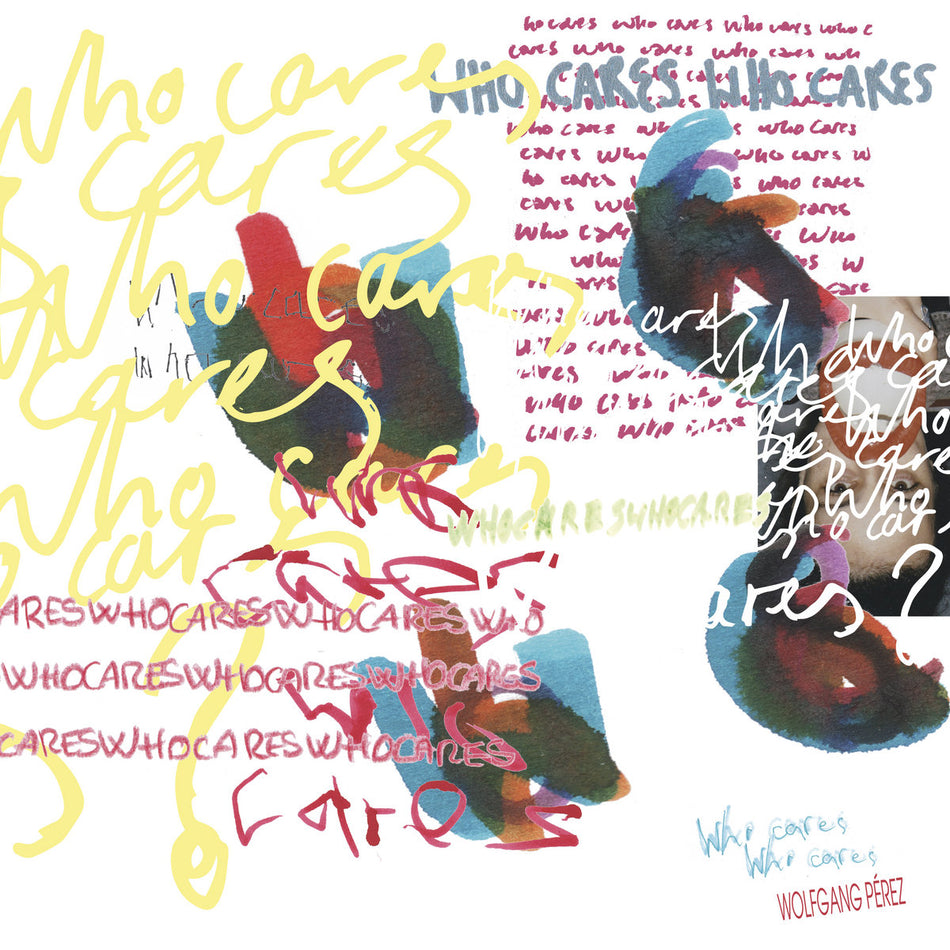 Who cares
cares
Who cares
cares
Who cares
o cares
?
ho cares who cares who cares who c
cares who cares who cares who
WHO CARES WHO CARES
who cares who s who cares
cares who who cares w
ho cares w s who cares
cares who cares
who care s who
who w
cares
who cares
cares who
who cares who c
cares who cares
Who cares
Who cares
cares
Who
cares
Who
o cares
ares ?
WHOCARESWHOCARES
Who
cares
ARESWHOCARESWHOCARESWHO
WHOCARESWHOCARESWHOCARES
CARESWHOCARESWHOCARES
Who
cares
Who cares
Who cares
WOLFGANG PÉREZ